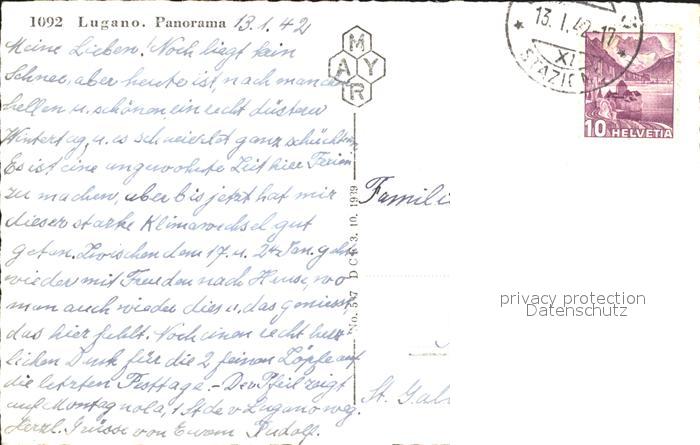 1092 Lugano. Panorama 13.1.42
Meine Lieben! Noch liegt kein
Schnee, aber heute ist, nach manchen
hellen u. schönen ein recht düsterer
Wintertag, u. es schneielet ganz schüchtern.
Es ist eine ungewohnte Zeit hier Ferien
zu machen, aber bis jetzt hat mir
dieser starke Klimawechsel gut
getan. Zwischen dem 17. u. 24. Jan. gehts
wieder mit Freuden nach Hause, wo
man auch wieder dies u. das geniesst,
das hier fehlt. Noch einen recht herz
lichen Dank für die 2 feinen Zöpfe auf
die letzten Festtage. - Der Pfeil zeigt
auf Montagnola, 1 St. de v. Lugano weg.
Herzl. Grüsse von Eurem Rudolf.
MAYR
No. 517 D C 3. 10. 1939
13. I. 42-17
STAZIONE
10 HELVETIA
Famili
St. Gal
privacy protection
Datenschutz